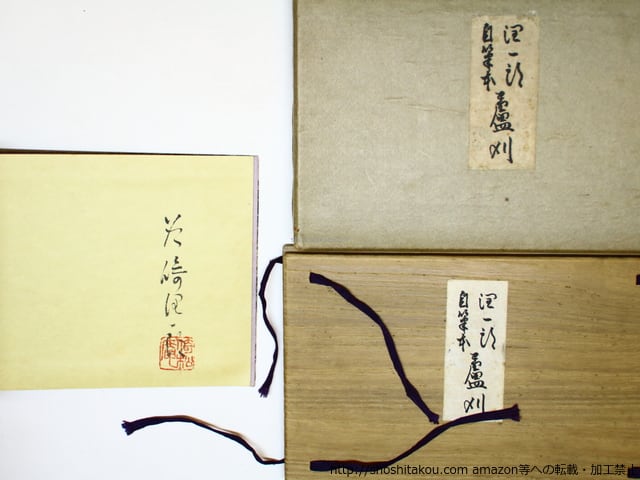 潤一郎
自筆本
蘆刈
谷崎潤一郎
潤一郎
自筆本
蘆刈
http://shoshitakou.com amazon等への転載・加工禁止